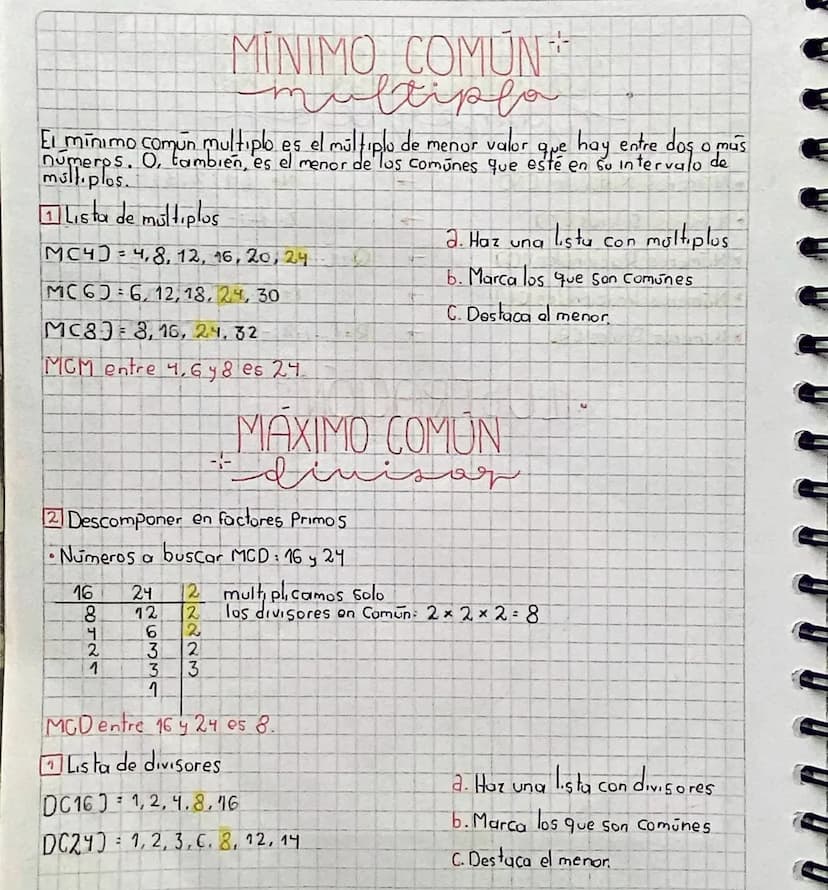 MÍNIMO COMÚN
multiplo
El mínimo común multiplo es el múltiplo de menor valor que hay entre dos o más
números. O, también, es el menor de los comúnes que esté en su intervalo de
múltiplos.
1 Lista de múltiplos
M(4) = 4, 8, 12, 16, 20, 24
M(6) = 6, 12, 18, 24, 30
M(8) = 8, 16, 24, 32
MCM entre 4, 6 y 8 es 24.
a. Haz una lista con múltiplos
b. Marca los que son comúnes
C. Destaca el menor.
MÁXIMO COMÚN
divisor
2 Descomponer en factores Primos
• Números a buscar MCD: 16 y 24
16 24 2
8 12 2
4 6 2
2 3 2
1 3 3
1
multiplicamos solo
los divisores en Común: 2 × 2 × 2 = 8
MCD entre 16 y 24 es 8.
1 Lista de divisores
D(16) = 1, 2, 4, 8, 16
D(24) = 1, 2, 3, 6, 8, 12, 14
a. Haz una lista con divisores
b. Marca los que son comúnes
C. Destaca el menor.